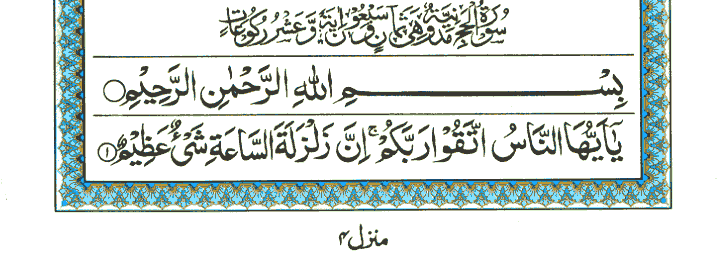 سُوْرَةُ الْحَجِّ مَدَنِيَّةٌ وَّهِيَ ثَمَانٍ وَّسَبْعُوْنَ اٰيَةً وَّعَشْرُ رُكُوْعَاتٍ
بِسْمِ اللّٰهِ الرَّحْمٰنِ الرَّحِيْمِ
يٰۤاَيُّهَا النَّاسُ اتَّقُوْا رَبَّكُمْ ۚ اِنَّ زَلْزَلَةَ السَّاعَةِ شَيْءٌ عَظِيْمٌ ۝۱
منزل ۴